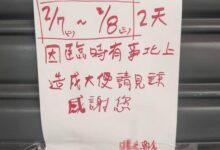 2/7(五)~2/8(六) 2天
因臨時有事北上
造成大便請見諒
感謝您